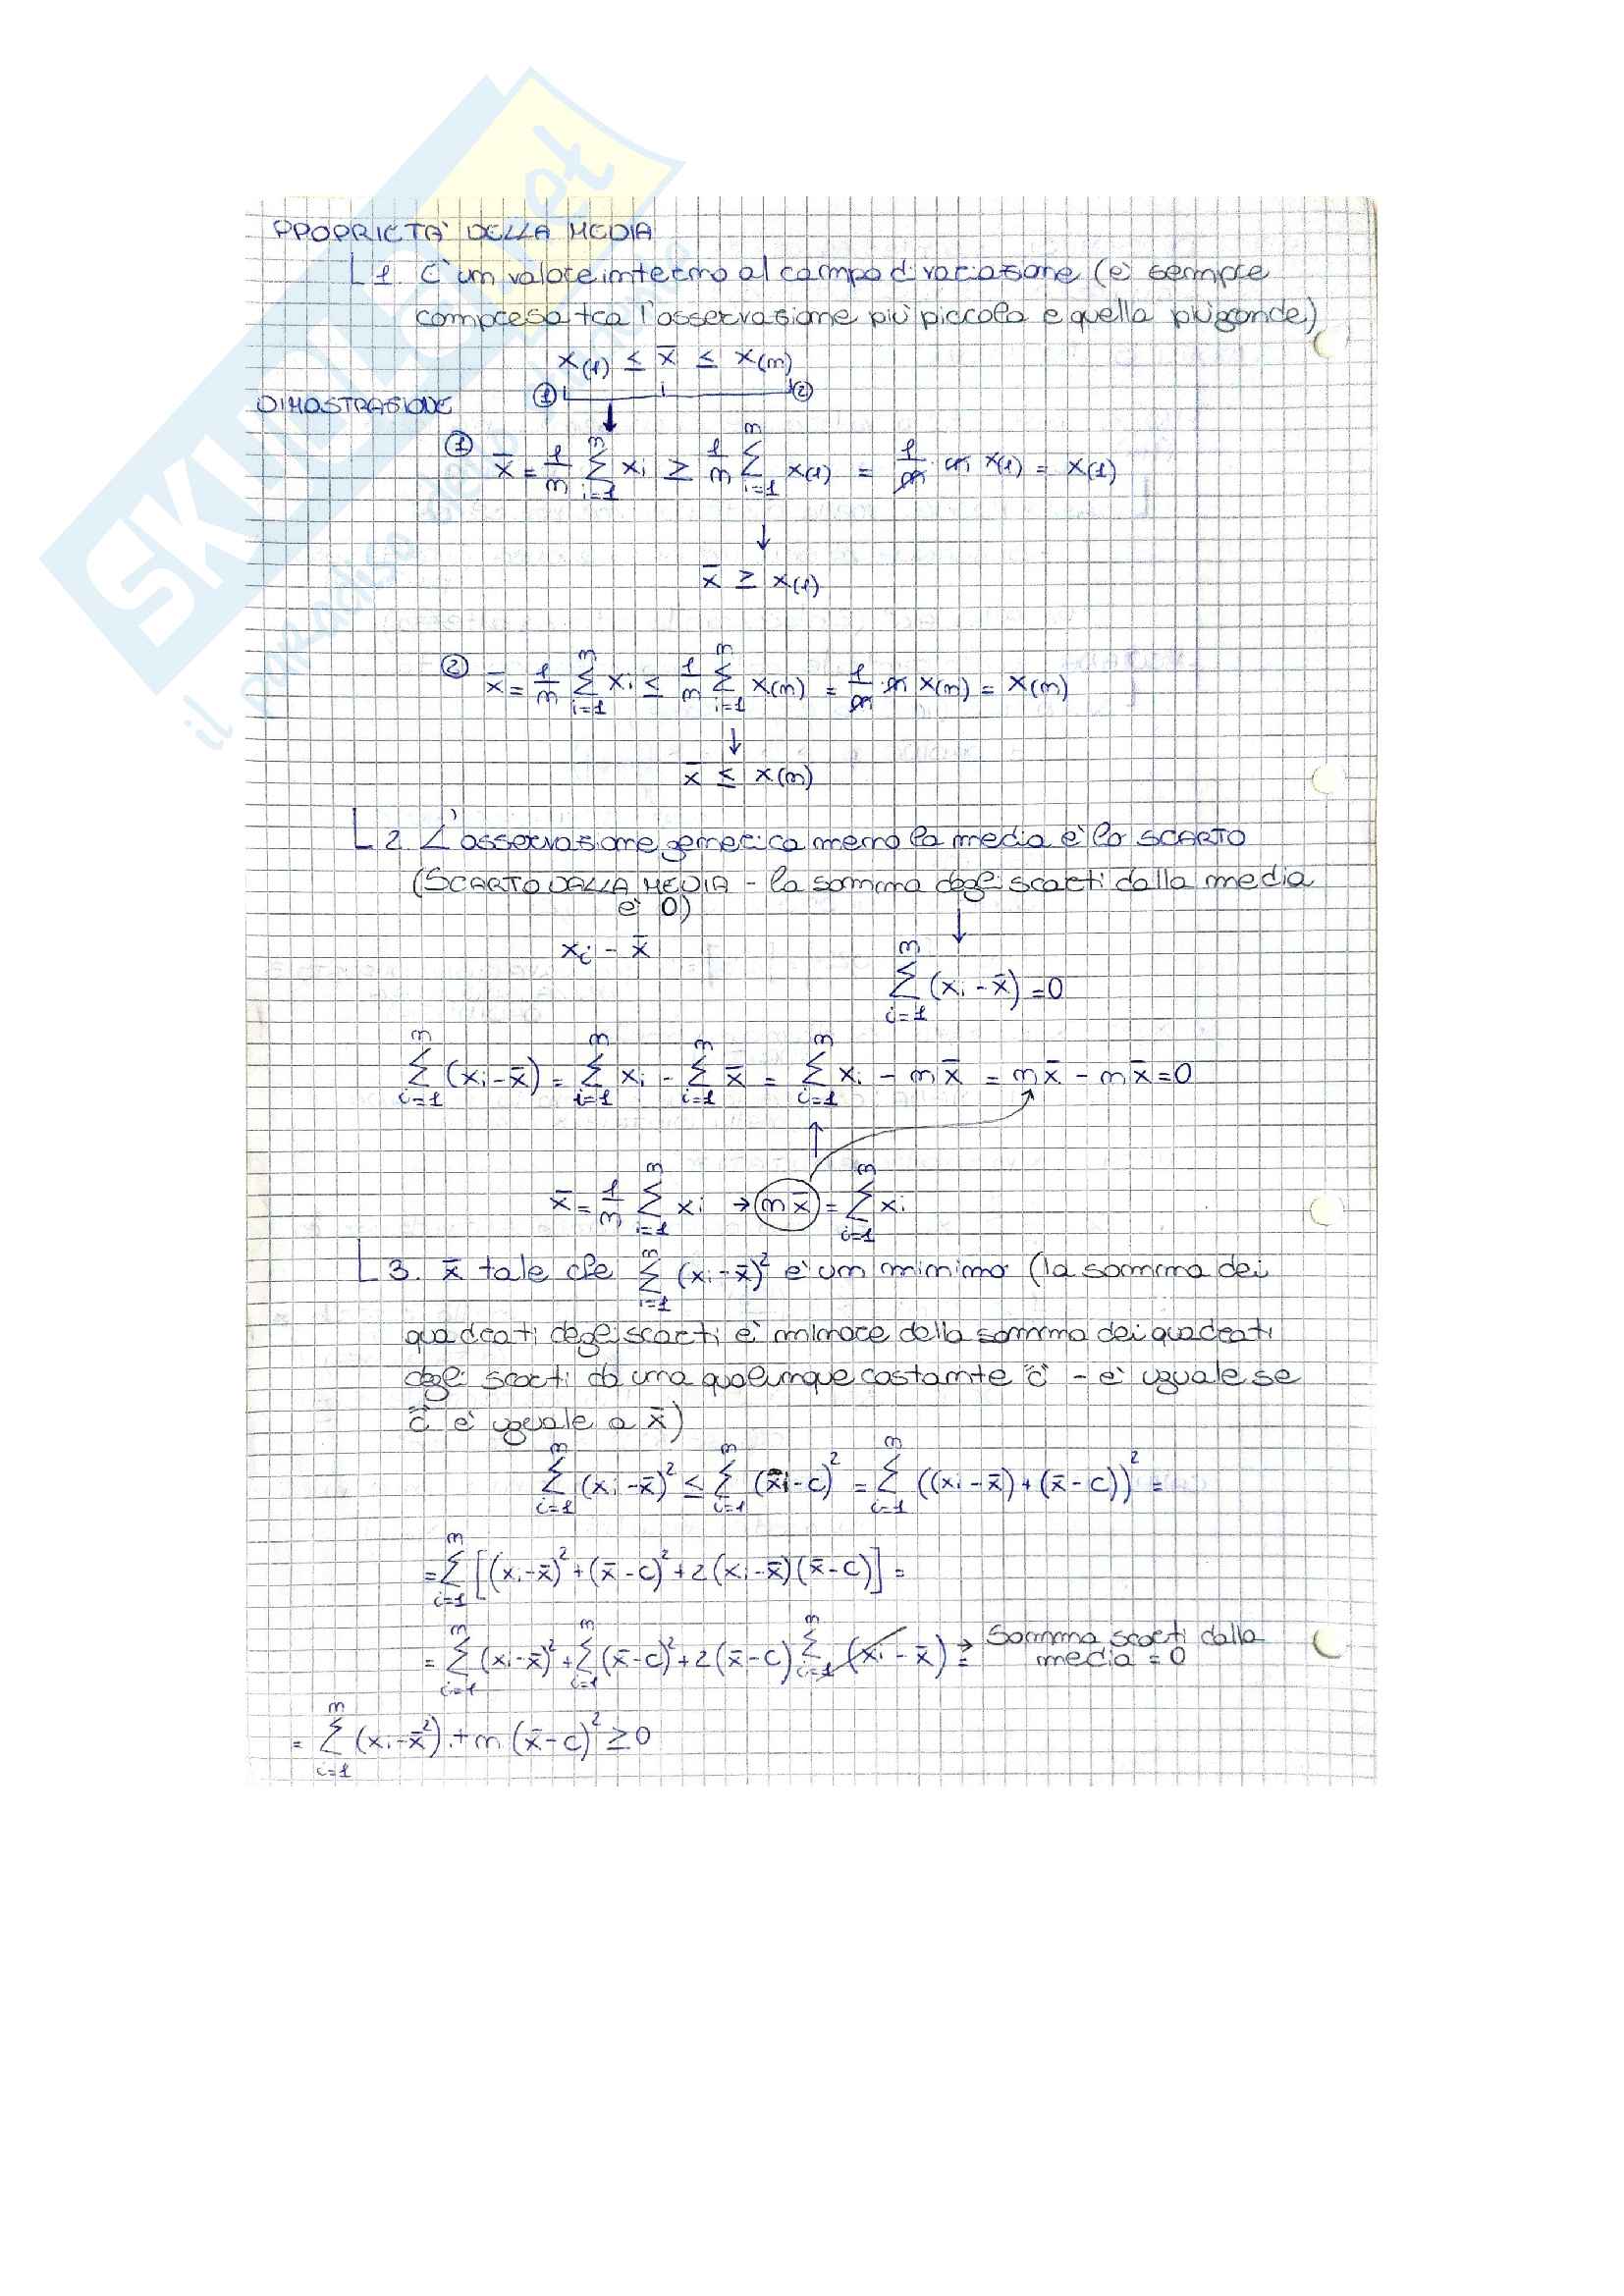 SKUOLA.net
il paradiso dello studente
PROPRIETA' DELLA MEDIA
1. E' un valore interno al campo di variazione (è sempre
compresa tra l'osservazione più piccola e quella più grande)
x(1) ≤ x̄ ≤ x(n)
① ②
DIMOSTRAZIONE
① x̄ = 1/n Σ_{i=1}^{n} xi ≥ 1/n Σ_{i=1}^{n} x(1) = 1/n · n x(1) = x(1)
↓
x̄ ≥ x(1)
② x̄ = 1/n Σ_{i=1}^{n} xi ≤ 1/n Σ_{i=1}^{n} x(n) = 1/n · n x(n) = x(n)
↓
x̄ ≤ x(n)
2. L'osservazione generica meno la media è lo SCARTO
(SCARTO DALLA MEDIA - la somma degli scarti dalla media
è 0)
xi - x̄ ↓
Σ_{i=1}^{n} (xi - x̄) = 0
Σ_{i=1}^{n} (xi - x̄) = Σ_{i=1}^{n} xi - Σ_{i=1}^{n} x̄ = Σ_{i=1}^{n} xi - n x̄ = n x̄ - n x̄ = 0
x̄ = 1/n Σ_{i=1}^{n} xi → n x̄ = Σ_{i=1}^{n} xi
3. x̄ tale che Σ_{i=1}^{n} (xi - x̄)² è un minimo (la somma dei
quadrati degli scarti è minore della somma dei quadrati
degli scarti da una qualunque costante "c" - è uguale se
"c" è uguale a x̄)
Σ_{i=1}^{n} (xi - x̄)² ≤ Σ_{i=1}^{n} (xi - c)² = Σ_{i=1}^{n} ((xi - x̄) + (x̄ - c))² =
= Σ_{i=1}^{n} [(xi - x̄)² + (x̄ - c)² + 2(xi - x̄)(x̄ - c)] =
= Σ_{i=1}^{n} (xi - x̄)² + Σ_{i=1}^{n} (x̄ - c)² + 2(x̄ - c) Σ_{i=1}^{n} (xi - x̄) = → Somma scarti dalla
media = 0
= Σ_{i=1}^{n} (xi - x̄²) + n (x̄ - c)² ≥ 0